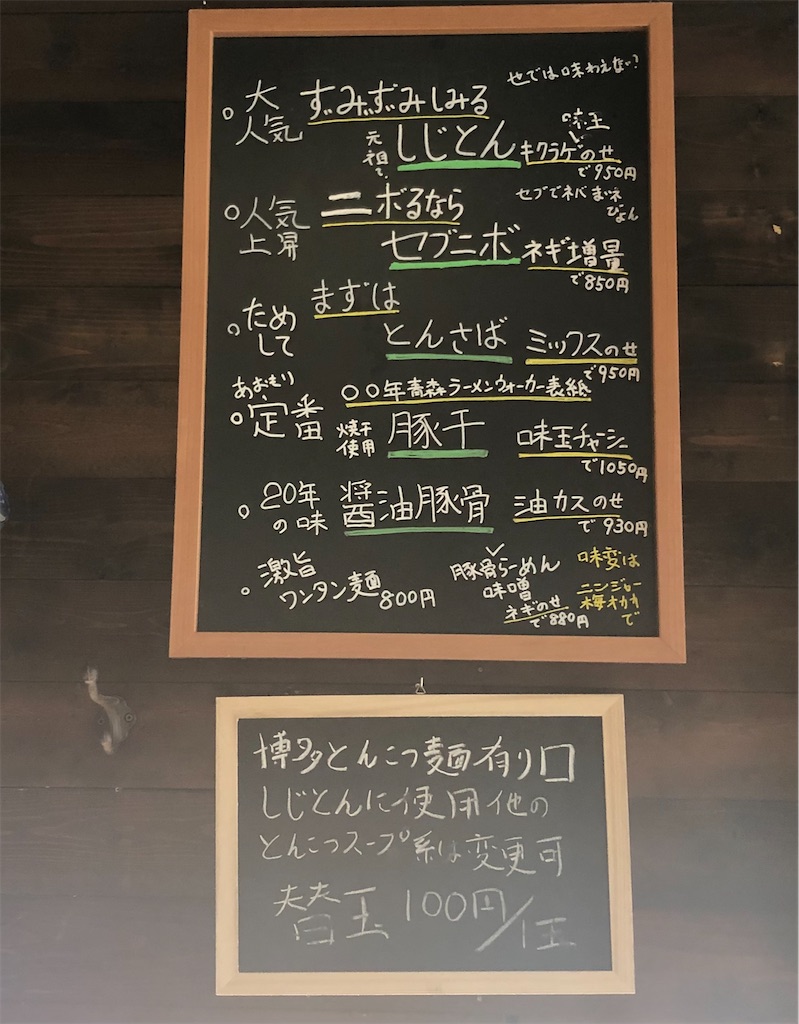 他では味わえない?
○大人気 ずみずみしみる
元祖で、しじとん 味玉キクラゲのせ
で950円
○人気上昇 ニボるなら
セブでネバまネ
ぴょん
セブニボ ネギ増量
で850円
○ためして まずは
とんさば ミックスのせ
で950円
あおもり
○定番 〇〇年青森ラーメンウォーカー表紙
焼干使用 豚干 味玉チャーシュー
で1050円
○20年の味 醤油豚骨 油カスのせ
で930円
○激旨
ワンタン麺800円
豚骨らーめん
味噌
ネギのせ
で880円
味変は
ニンジョー
梅オカカ
で
博多とんこつ麺有り口
しじとんに使用他の
とんこつスープ系は変更可
替玉 100円/1玉